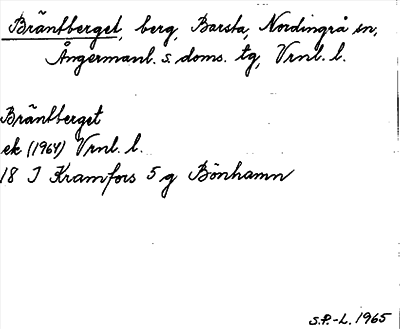 Bräntberget, berg, Barsta, Nordingrå sn,
Ångermanl. s. doms. tg, Vrnl. l.
Bräntberget
ek (1964) Vrnl. l.
18 I Kramfors 5 g Bönhamn
S.P.-L. 1965